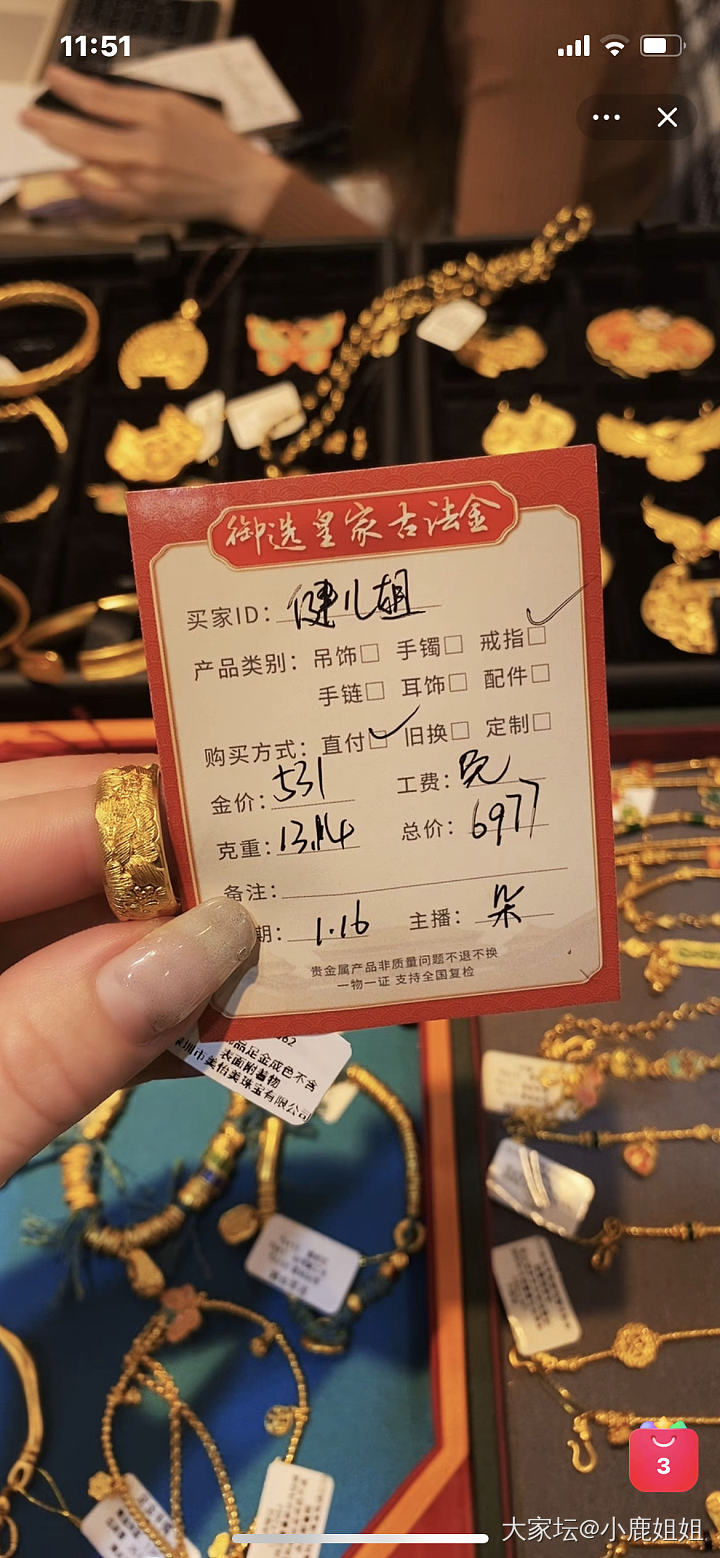 11:51
御选皇家古法金
买家ID: 健儿姐
产品类别: 吊饰□ 手镯□ 戒指□
手链□ 耳饰□ 配件□
购买方式: 直付□ 旧换□ 定制□
金价: 531 工费: 免
克重: 13.14 总价: 6977
备注:
期: 1.16 主播: 朵
贵金属产品非质量问题不退不换
一物一证 支持全国复检
品足金成色不含
表面附着物
圳市美怡美珠宝有限公司
3
大家坛@小鹿姐姐